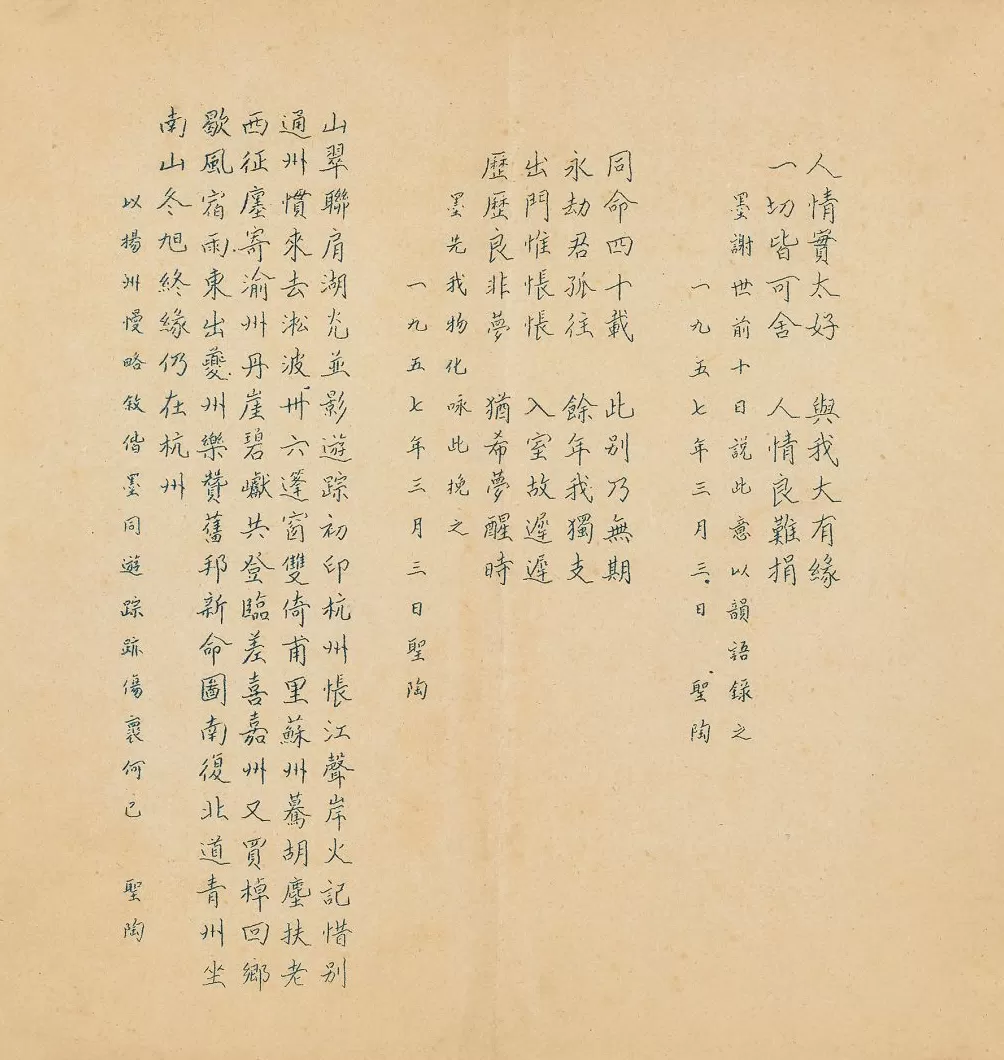 人情實太好　與我大有緣
一切皆可舍　人情良難捐
墨謝世前十日說此意以韻語錄之
一九五七年三月三日　聖陶
同命四十載　此別乃無期
永劫君孤往　餘年我獨支
出門惟悵悵　入室故遲遲
歷歷良非夢　猶希夢醒時
墨先我物化咏此挽之
一九五七年三月三日聖陶
山翠聯肩湖光並影遊踪初印杭州悵江聲岸火記惜別
通州慣來去淞波卅六蓬窗雙倚甫里蘇州驀胡塵扶老
西征廛寄渝州丹崖碧巘共登臨差喜嘉州又買棹回鄉
歇風宿雨東出夔州樂贊舊邦新命圖南復北道青州坐
南山冬旭終緣仍在杭州
以揚州慢略敘偕墨同遊踪跡傷裹何已　聖陶